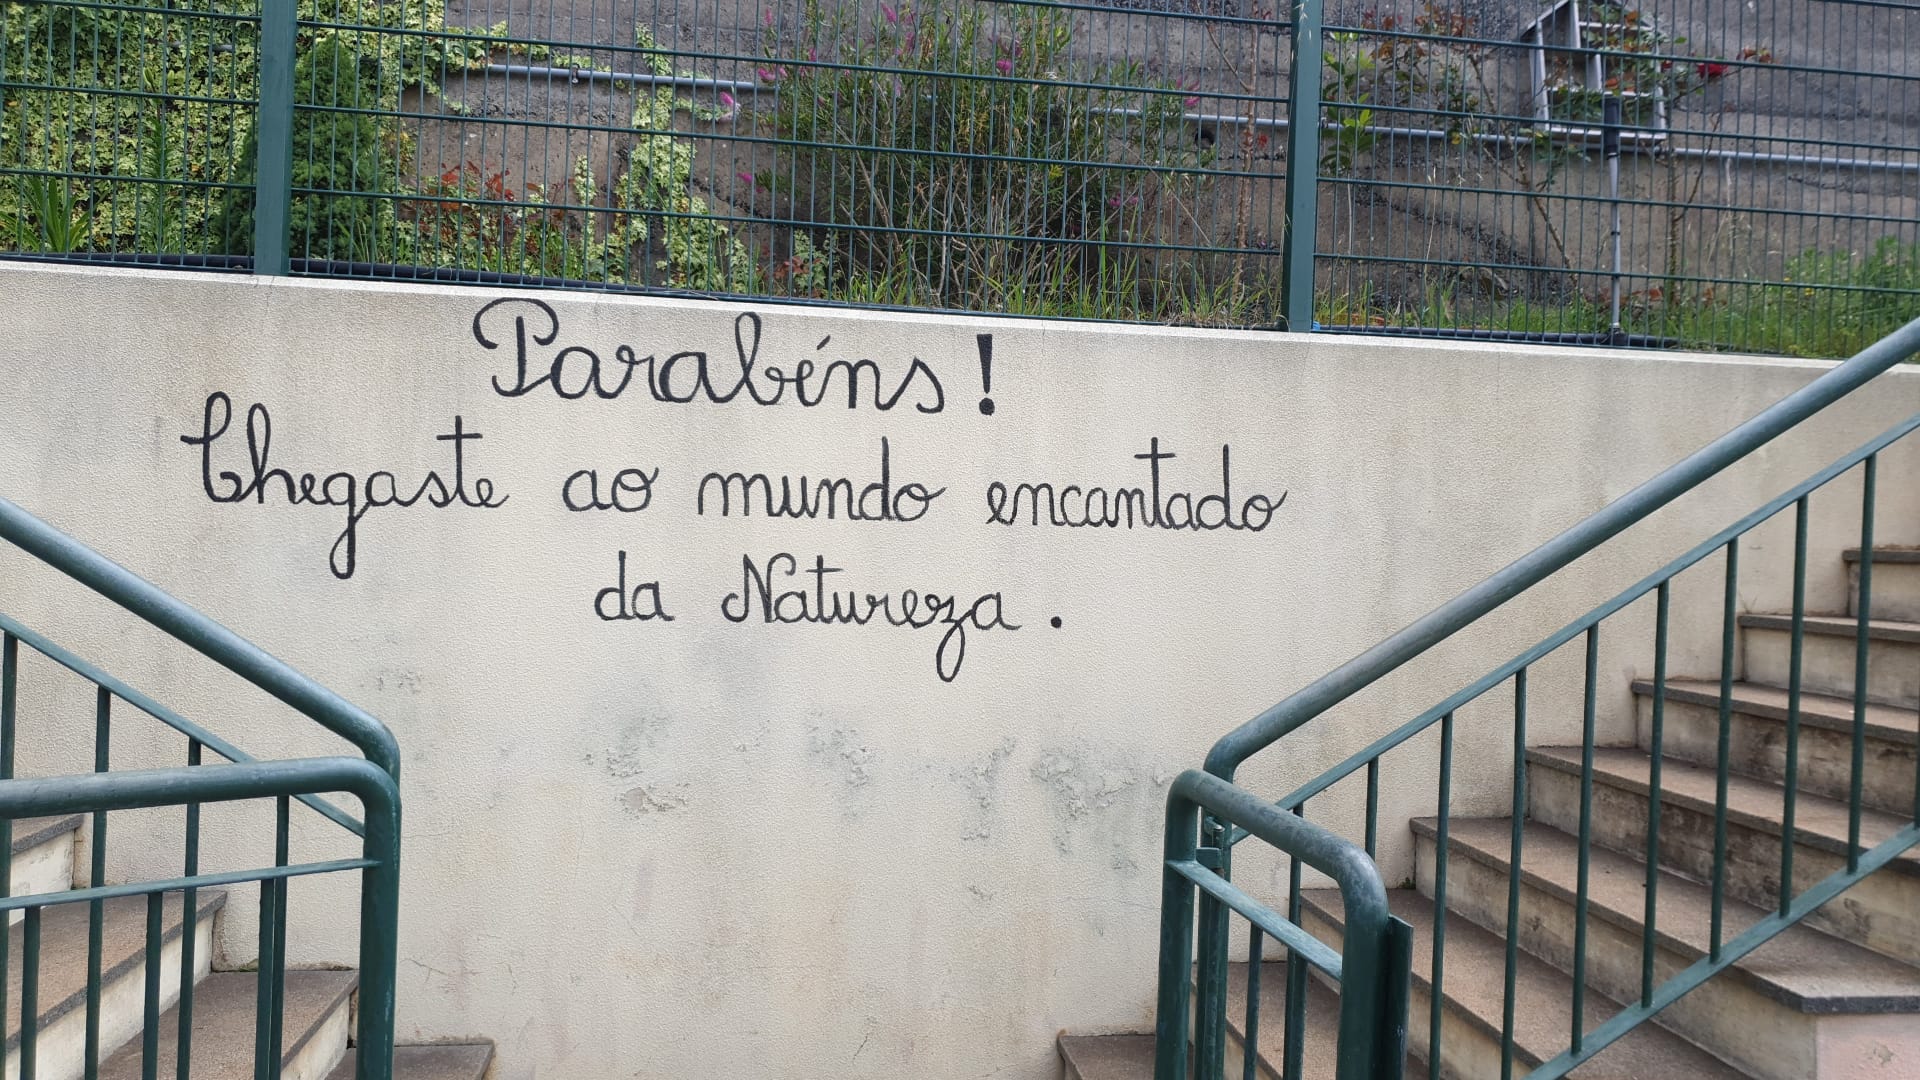 Parabéns!
Chegaste ao mundo encantado
da Natureza.